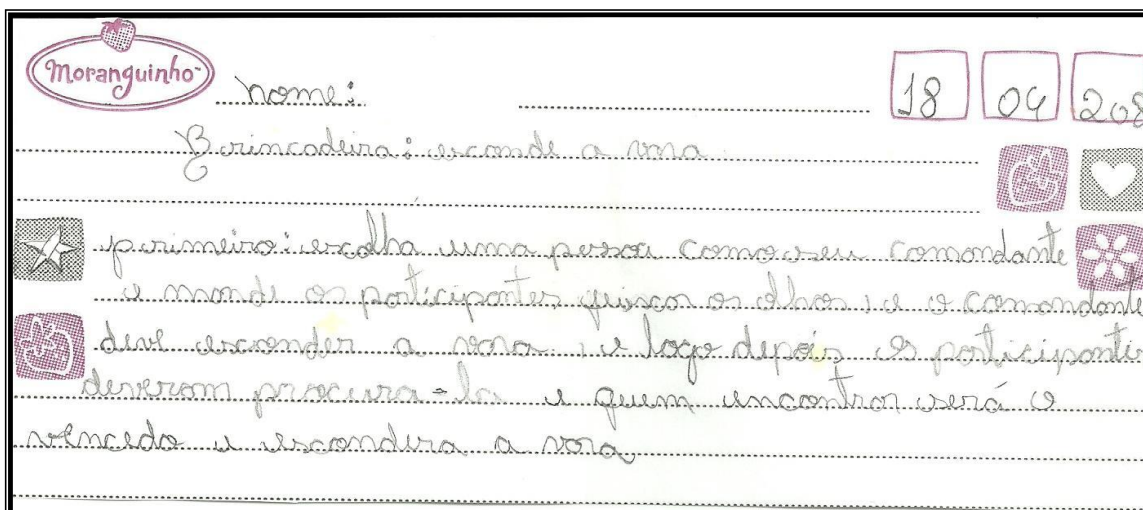 Moranguinho
nome:
18 04 208
Brincadeira: esconde a vara
primeiro: escolha uma pessoa como seu comandante
e mande os participantes os olhos, e o comandante
deve esconder a vara, e logo depois os participantes
deveram procura-la e quem encontrar será o
vencedo e escondera a vara